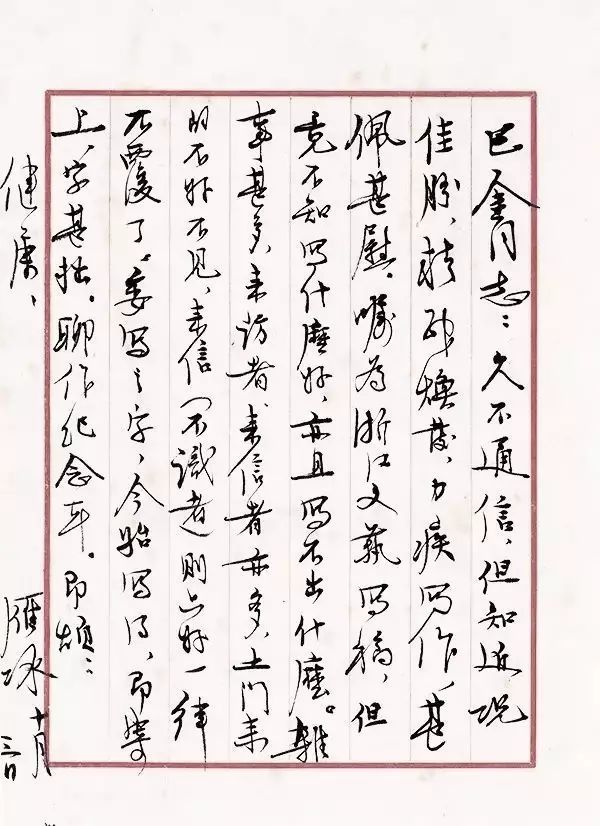 巴金同志：久不通信，但知近况
佳勝，精神焕發，力疾写作，甚
佩甚慰。嘱為浙江文藝写稿，但
竟不知写什麽好，亦且写不出什麽。雜
事甚多，来訪者、来信者亦多，上门来
的不好不见，来信（不識者）則只好一律
不覆了。委写之字，今始写得，即寄
上，字甚拙，聊作纪念耳。即頌：
健康、
雁冰 十月
三日